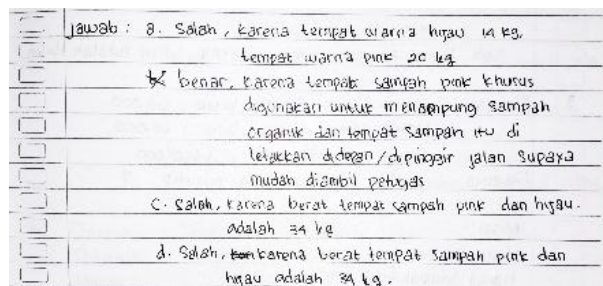 Jawab : a. Salah, karena tempat warna hijau 14 kg,
tempat warna pink 20 kg
b. benar, karena tempat sampah pink khusus
digunakan untuk menampung sampah
organik dan tempat sampah itu di
letakkan didepan/dipinggir jalan supaya
mudah diambil petugas
c. Salah, karena berat tempat sampah pink dan hijau.
adalah 34 kg
d. Salah, karena berat tempat sampah pink dan
hijau adalah 34 kg.